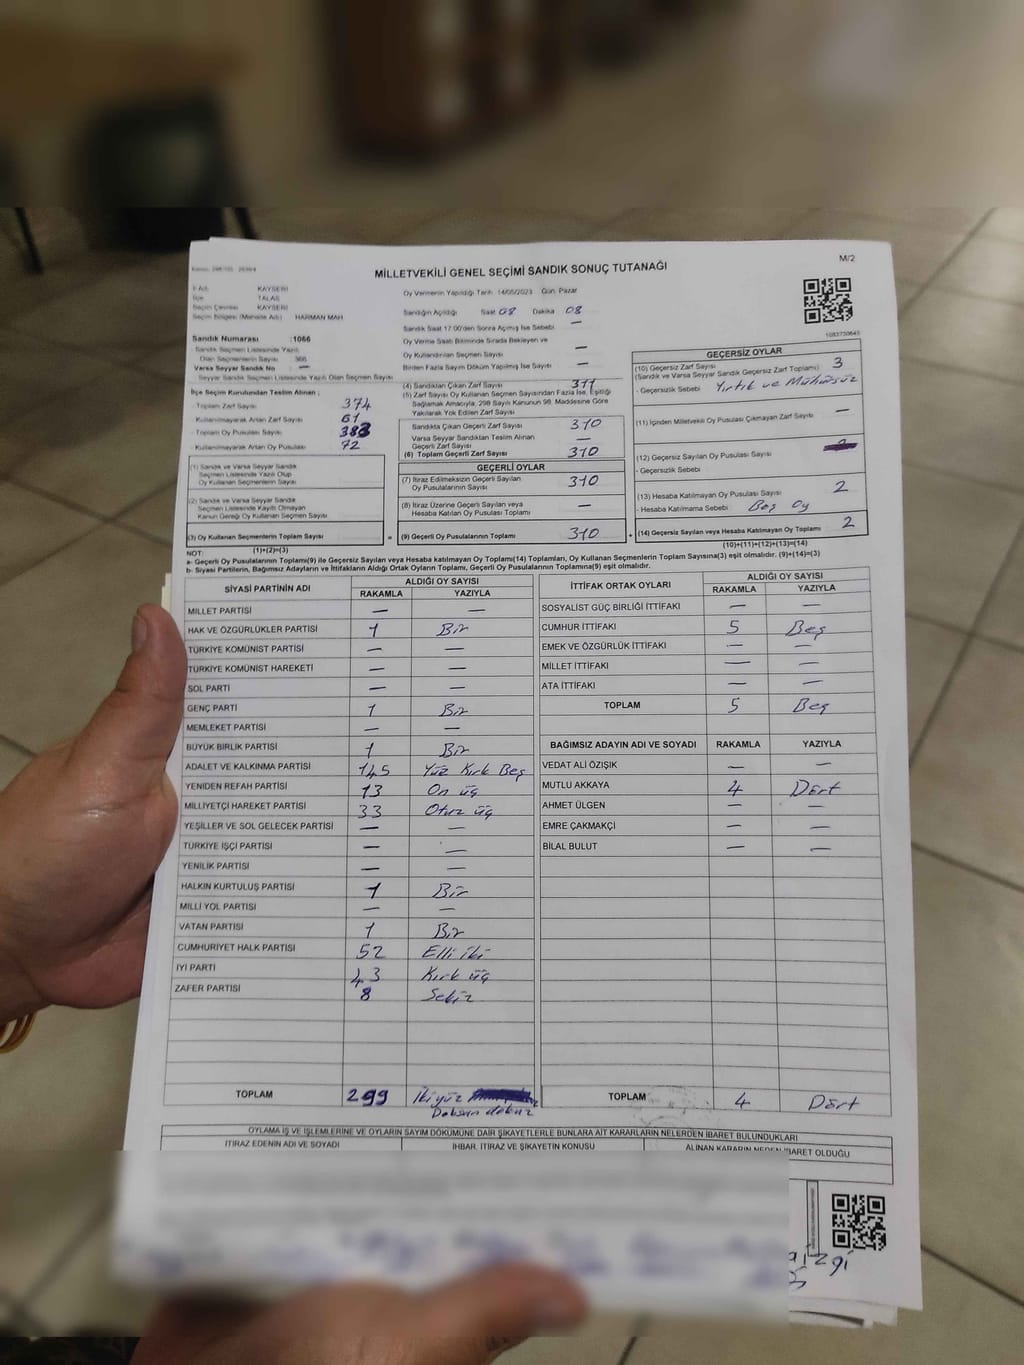 MİLLETVEKİLİ GENEL SEÇİMİ SANDIK SONUÇ TUTANAĞI
M/2
İl Adı KAYSERİ
İlçe TALAS
Seçim Çevresi KAYSERİ
Seçim Bölgesi (Mahalle Adı) HARMAN MAH.
Sandık Numarası :1066
Sandık Seçmen Listesinde Yazılı
Olan Seçmenlerin Sayısı 366
Varsa Seyyar Sandık No —
Seyyar Sandık Seçmen Listesinde Yazılı Olan Seçmen Sayısı
İlçe Seçim Kurulundan Teslim Alınan ;
- Toplam Zarf Sayısı 374
- Kullanılmayarak Artan Zarf Sayısı 61
- Toplam Oy Pusulası Sayısı 383
- Kullanılmayarak Artan Oy Pusulası 72
(1) Sandık ve Varsa Seyyar Sandık
Seçmen Listesinde Yazılı Olup
Oy Kullanan Seçmen Sayısı
(2) Sandık ve Varsa Seyyar Sandık
Seçmen Listesinde Kayıtlı Olmayan
Kanun Gereği Oy Kullanan Seçmen Sayısı
(3) Oy Kullanan Seçmenlerin Toplam Sayısı
(1)+(2)=(3)
Oy Vermenin Yapıldığı Tarih 14/05/2023 Gün Pazar
Sandığın Açıldığı Saat 08 Dakika 08
Sandık Saat 17:00'den Sonra Açılmış İse Sebebi —
Oy Verme Saati Bitiminde Sırada Bekleyen ve
Oy Kullandırılan Seçmen Sayısı —
Birden Fazla Sayım Döküm Yapılmış İse Sayısı —
(4) Sandıktan Çıkan Zarf Sayısı 311
(5) Zarf Sayısı Oy Kullanan Seçmen Sayısından Fazla İse, Eşitliği
Sağlamak Amacıyla, 298 Sayılı Kanunun 98. Maddesine Göre
Yakılarak Yok Edilen Zarf Sayısı
Sandıkta Çıkan Geçerli Zarf Sayısı 310
Varsa Seyyar Sandıktan Teslim Alınan
Geçerli Zarf Sayısı —
(6) Toplam Geçerli Zarf Sayısı 310
GEÇERLİ OYLAR
(7) İtiraz Edilmeksizin Geçerli Sayılan
Oy Pusulalarının Sayısı 310
(8) İtiraz Üzerine Geçerli Sayılan veya
Hesaba Katılan Oy Pusulası Toplamı —
(9) Geçerli Oy Pusulalarının Toplamı 310
1083730645
GEÇERSİZ OYLAR
(10) Geçersiz Zarf Sayısı 3
(Sandık ve Varsa Seyyar Sandık Geçersiz Zarf Toplamı)
- Geçersizlik Sebebi Yırtık ve Mühürsüz
(11) İçinden Milletvekili Oy Pusulası Çıkmayan Zarf Sayısı —
(12) Geçersiz Sayılan Oy Pusulası Sayısı
- Geçersizlik Sebebi
(13) Hesaba Katılmayan Oy Pusulası Sayısı 2
- Hesaba Katılmama Sebebi Boş Oy
(14) Geçersiz Sayılan veya Hesaba Katılmayan Oy Toplamı 2
(10)+(11)+(12)+(13)=(14)
NOT:
a- Geçerli Oy Pusulalarının Toplamı(9) ile Geçersiz Sayılan veya Hesaba katılmayan Oy Toplamı(14) Toplamları, Oy Kullanan Seçmenlerin Toplam Sayısına(3) eşit olmalıdır. (9)+(14)=(3)
b- Siyasi Partilerin, Bağımsız Adayların ve İttifakların Aldığı Ortak Oyların Toplamı, Geçerli Oy Pusulalarının Toplamına(9) eşit olmalıdır.
SİYASİ PARTİNİN ADI ALDIĞI OY SAYISI
RAKAMLA YAZIYLA
MİLLET PARTİSİ — —
HAK VE ÖZGÜRLÜKLER PARTİSİ 1 Bir
TÜRKİYE KOMÜNİST PARTİSİ — —
TÜRKİYE KOMÜNİST HAREKETİ — —
SOL PARTİ — —
GENÇ PARTİ 1 Bir
MEMLEKET PARTİSİ — —
BÜYÜK BİRLİK PARTİSİ 1 Bir
ADALET VE KALKINMA PARTİSİ 145 Yüz Kırk Beş
YENİDEN REFAH PARTİSİ 13 On üç
MİLLİYETÇİ HAREKET PARTİSİ 33 Otuz üç
YEŞİLLER VE SOL GELECEK PARTİSİ — —
TÜRKİYE İŞÇİ PARTİSİ — —
YENİLİK PARTİSİ — —
HALKIN KURTULUŞ PARTİSİ 1 Bir
MİLLİ YOL PARTİSİ — —
VATAN PARTİSİ 1 Bir
CUMHURİYET HALK PARTİSİ 52 Elli iki
İYİ PARTİ 43 Kırk üç
ZAFER PARTİSİ 8 Sekiz
TOPLAM 299 İkiyüz
Doksan dokuz
İTTİFAK ORTAK OYLARI ALDIĞI OY SAYISI
RAKAMLA YAZIYLA
SOSYALİST GÜÇ BİRLİĞİ İTTİFAKI — —
CUMHUR İTTİFAKI 5 Beş
EMEK VE ÖZGÜRLÜK İTTİFAKI — —
MİLLET İTTİFAKI — —
ATA İTTİFAKI — —
TOPLAM 5 Beş
BAĞIMSIZ ADAYIN ADI VE SOYADI RAKAMLA YAZIYLA
VEDAT ALİ ÖZIŞIK — —
MUTLU AKKAYA 4 Dört
AHMET ÜLGEN — —
EMRE ÇAKMAKÇİ — —
BİLAL BULUT — —
TOPLAM 4 Dört
OYLAMA İŞ VE İŞLEMLERİNE VE OYLARIN SAYIM DÖKÜMÜNE DAİR ŞİKAYETLERLE BUNLARA AİT KARARLARIN NELERDEN İBARET BULUNDUKLARI
İTİRAZ EDENİN ADI VE SOYADI İHBAR, İTİRAZ VE ŞİKAYETİN KONUSU ALINAN KARARIN NEDEN İBARET OLDUĞU